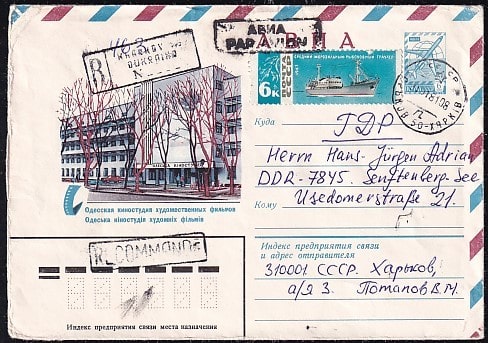 АВИА
PAR AVION
АВИА
R
KHARKOV
UKRAINE
N
6к
ПОЧТА СССР
СРЕДНИЙ МОРОЗИЛЬНЫЙ РЫБОЛОВНЫЙ ТРАУЛЕР
ХАРКІВ
Куда
ГДР
Herrn Hans-Jürgen Adrian
DDR-7845. Senftenberg-See
Кому
Usedomerstraße 21.
Одесская киностудия художественных фильмов
Одеська кіностудія художніх фільмів
RECOMMANDE
Индекс предприятия связи
и адрес отправителя
310001 СССР. Харьков,
а/я 3. Потапов В.М.
Индекс предприятия связи места назначения